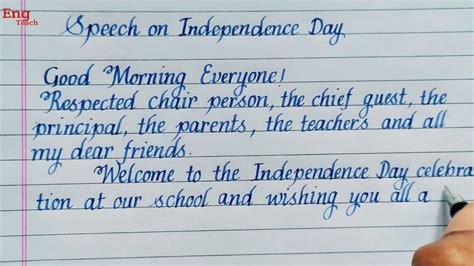 Eng
Teach
Speech on Independence Day
Good Morning Everyone!
Respected chair person, the chief guest, the
principal, the parents, the teachers and all
my dear friends.
Welcome to the Independence Day celebra
tion at our school and wishing you all a